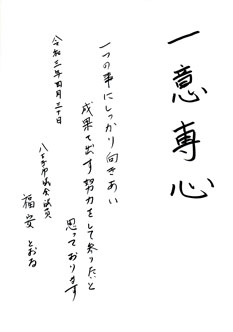 一意専心
一つの事にしっかり向きあい
成果を出す努力をして参ったと
思っております
令和三年四月三十日
八王子市議会議員
福安とおる